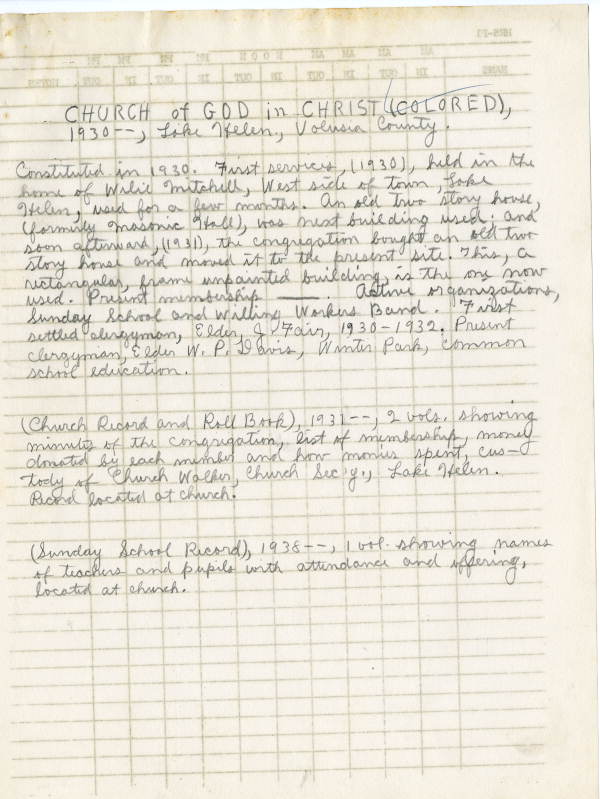 CHURCH of GOD in CHRIST (COLORED),
1930--, Lake Helen, Volusia County.
Constituted in 1930. First services, (1930), held in the
home of Wilie Mitchell, West side of town, Lake
Helen, used for a few months. An old two story house,
(formerly Masonic Hall), was next building used; and
soon afterward, (1931), the congregation bought an old two
story house and moved it to the present site. This, a
rectangular, frame unpainted building, is the one now
used. Present membership ____. Active organizations,
Sunday School and Willing Workers Band. First
settled clergyman, Elder, J. Fair, 1930-1932. Present
clergyman, Elder W. P. Davis, Winter Park, common
school education.
(Church Record and Roll Book), 1931--, 2 vols. showing
minutes of the congregation, list of membership, money
donated by each member and how monies spent, cus-
tody of Church Walker, Church Sec'y., Lake Helen.
Record located at church.
(Sunday School Record), 1938--, 1 vol. showing names
of teachers and pupils with attendance and offering,
located at church.